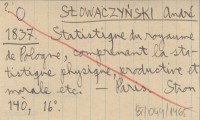 O SŁOWACZYŃSKI André
1837. Statistique du royaume
de Pologne, comprenant la sta-
tistique physique, productive et
morale etc. — Paris. Stron
140, 16°.